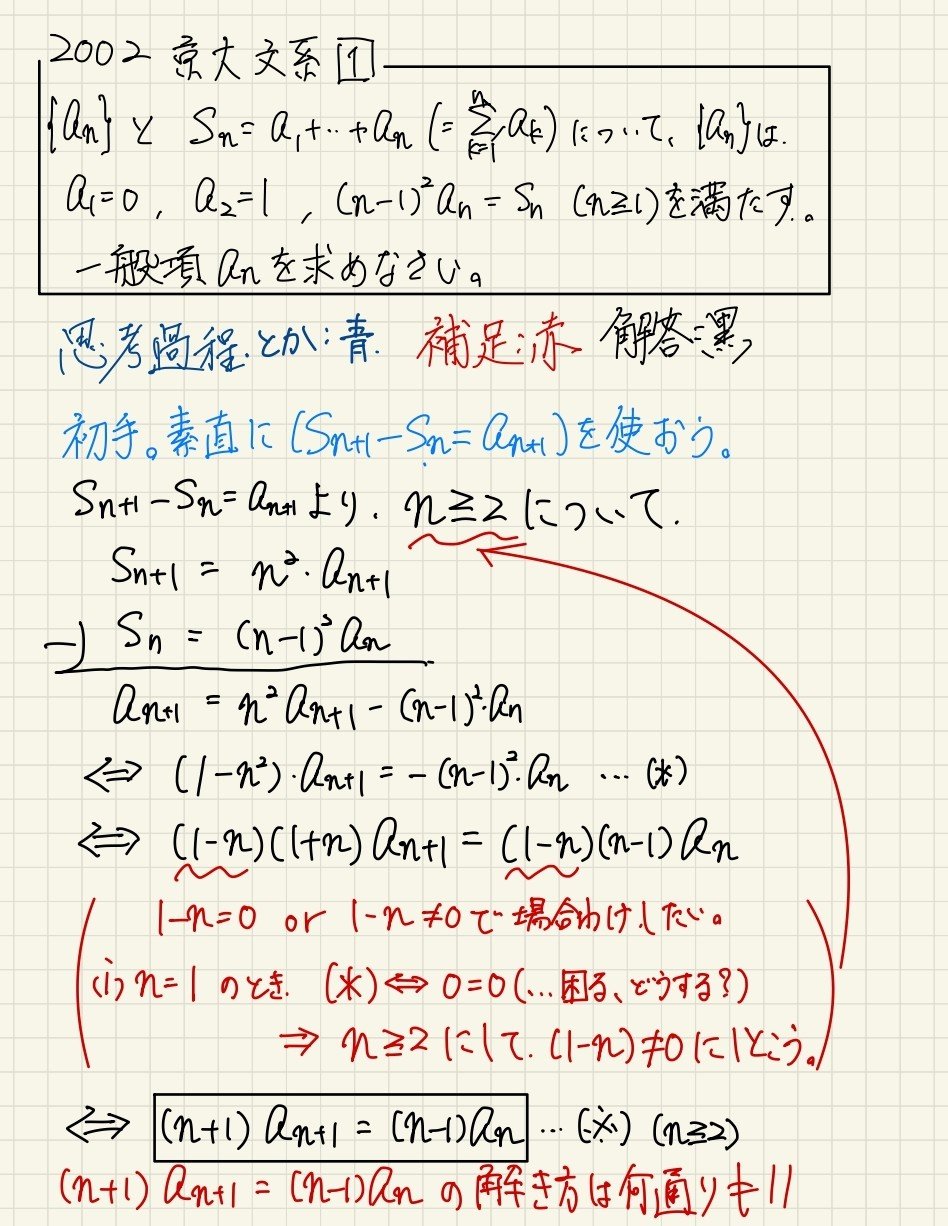 2002 京大文系 1
{an} と Sn = a1+‥+an (= Σ[k=1→n] ak) について、{an}は.
a1=0 , a2=1 , (n-1)²an = Sn (n≧1)を満たす。
一般項 an を求めなさい。
思考過程.とか:青. 補足:赤 解答:黒
初手。素直に (Sn+1-Sn=an+1)を使おう。
Sn+1-Sn=an+1より. n≧2について.
Sn+1 = n²・an+1
-) Sn = (n-1)²an
an+1 = n²an+1 - (n-1)²・an
⇔ (1-n²)・an+1 = -(n-1)²・an … (*)
⇔ (1-n)(1+n)an+1 = (1-n)(n-1)an
1-n=0 or 1-n≠0で場合わけしたい。
(i) n=1 のとき. (*)⇔ 0=0(…困る、どうする?)
⇒ n≧2 にして. (1-n)≠0にしとこう。
⇔ (n+1)an+1 = (n-1)an … (※) (n≧2)
(n+1)an+1 = (n-1)an の解き方は何通りも!!